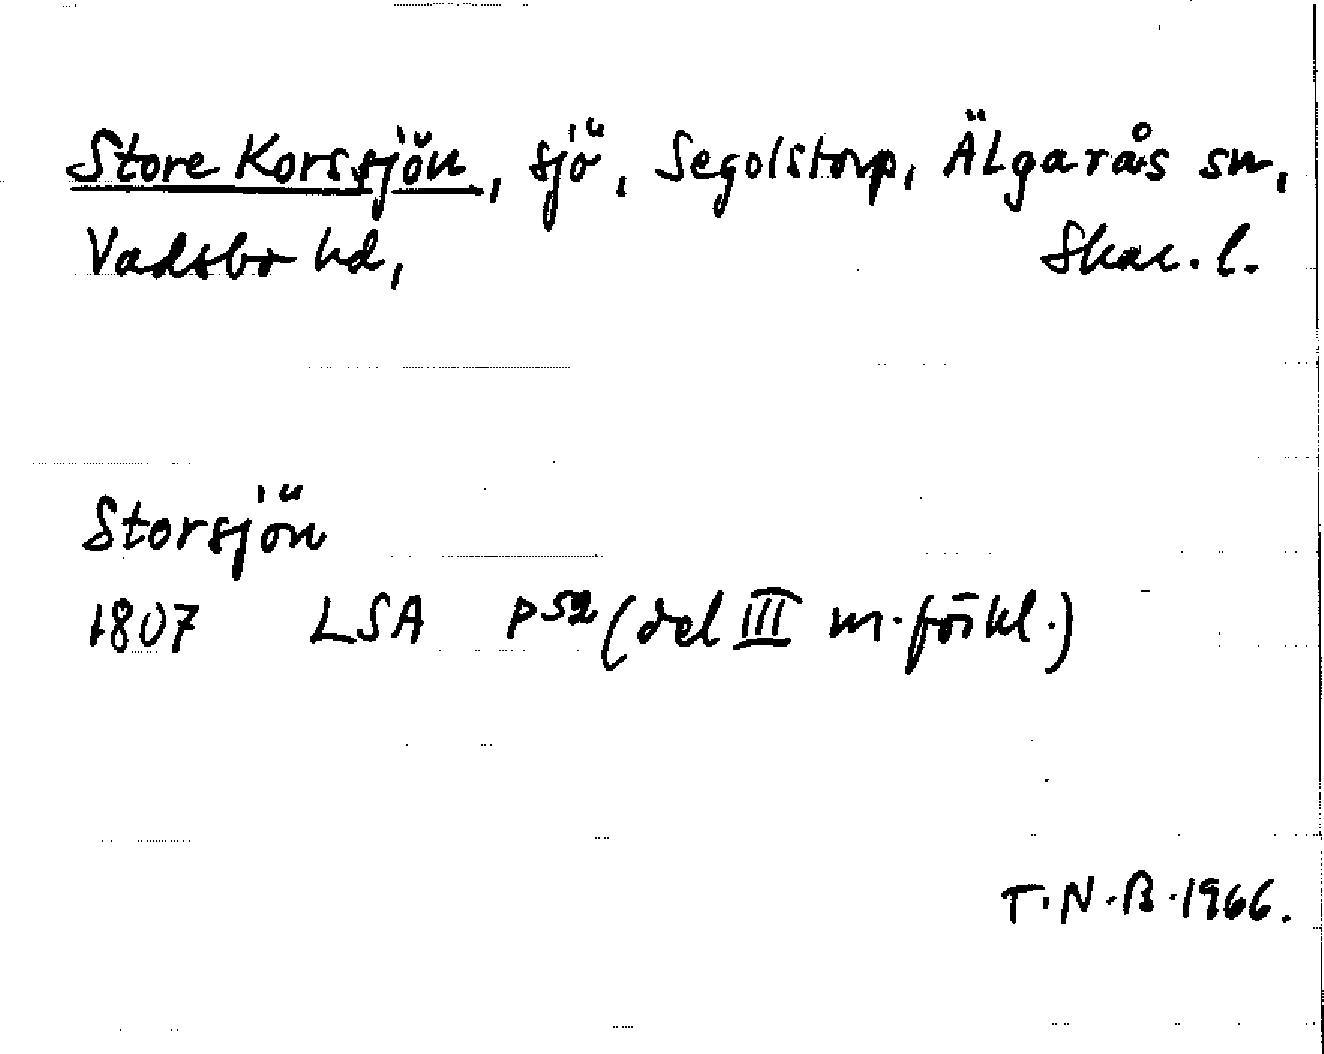 Store Korssjön, sjö, Segolstorp, Älgarås sn,
Vadsbo hd, Skar. l.
Storsjön
1807 LSA P52 (del III m. förkl.)
T.N.B. 1966.